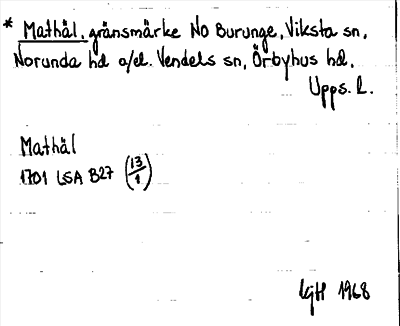 * Mathäl, gränsmärke NO Burunge, Viksta sn,
Norunda hd o/el. Vendels sn, Örbyhus hd,
Upps. L.
Mathäl
1701 LSA B27 (13/1)
1968